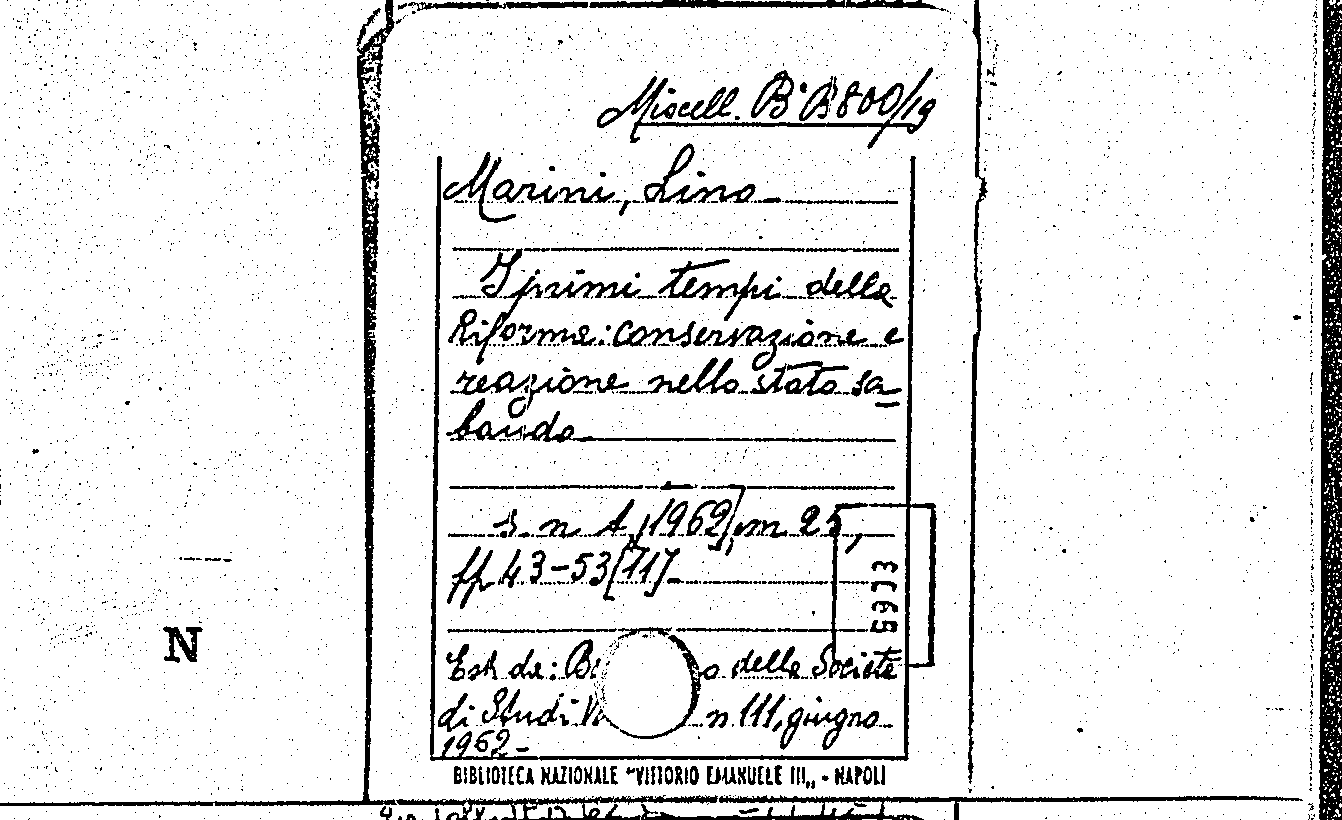 Miscell. B. B 800/19
Marini, Lino
I primi tempi della
Riforma: conservazione e
reazione nello stato sa
baudo
s. n t, [1962], in 25,
pp 43-53 [11]
Est da: della Società
di Studi n 111, giugno
1962-
BIBLIOTECA NAZIONALE "VITTORIO EMANUELE III„ - NAPOLI
N